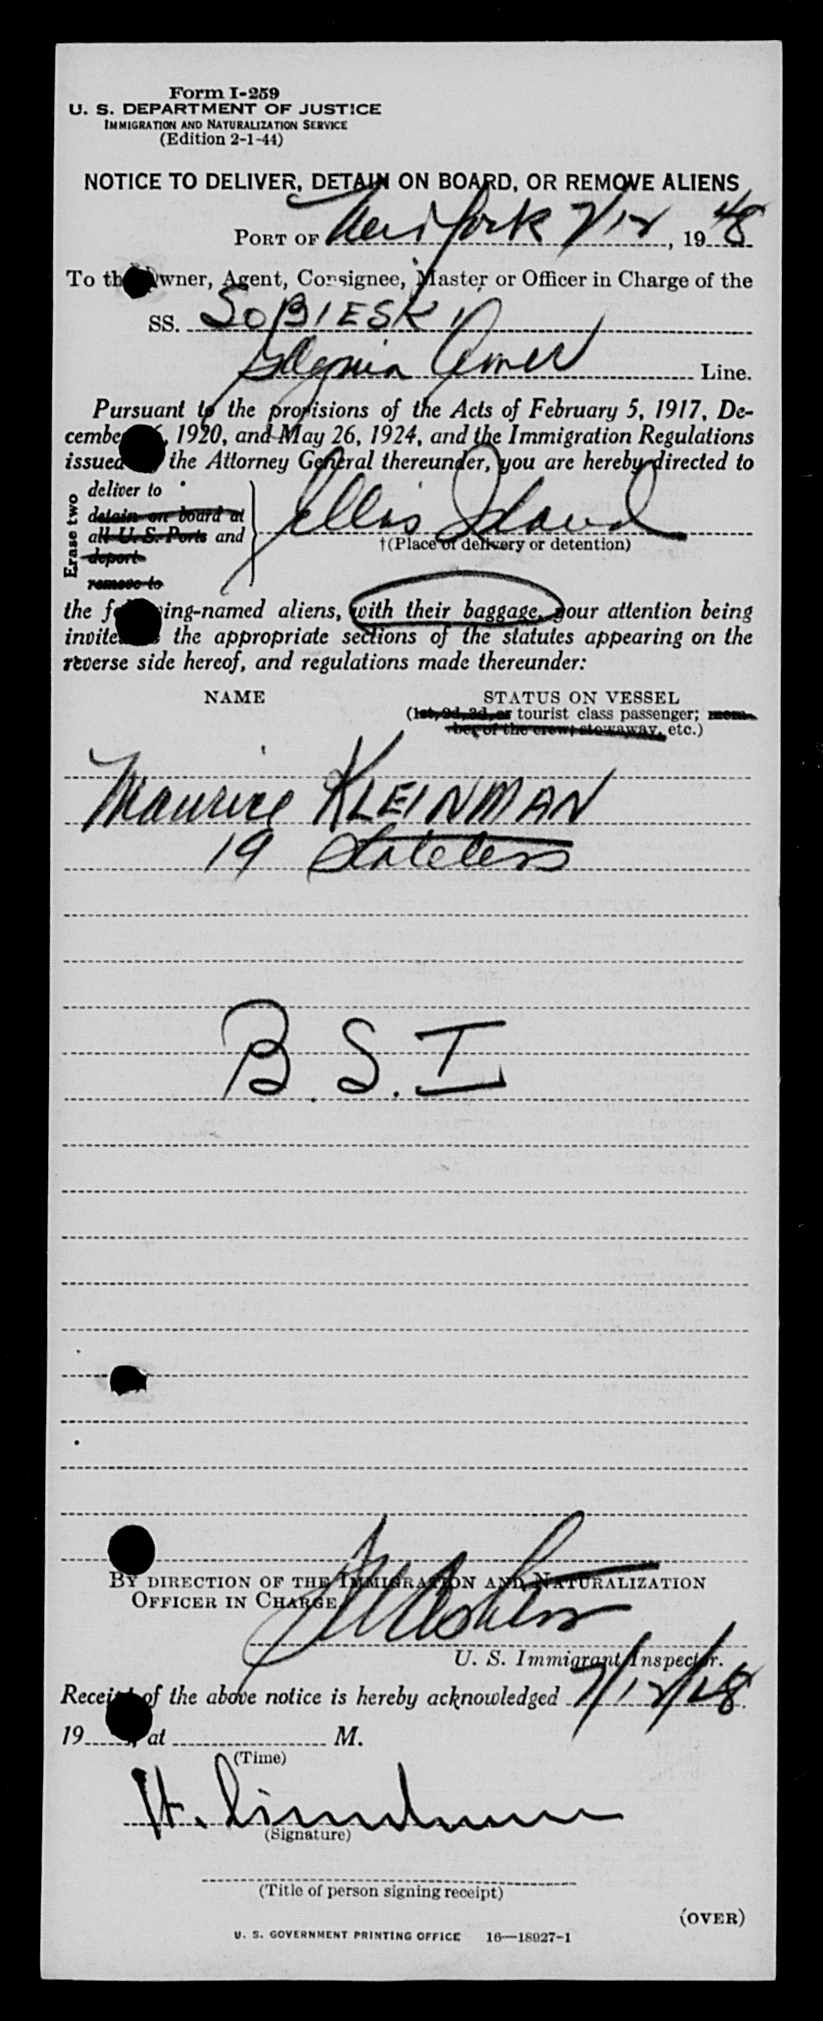 Form I-259
U. S. DEPARTMENT OF JUSTICE
IMMIGRATION AND NATURALIZATION SERVICE
(Edition 2-1-44)
NOTICE TO DELIVER, DETAIN ON BOARD, OR REMOVE ALIENS
PORT OF New York 7/12, 1948
To the Owner, Agent, Consignee, Master or Officer in Charge of the
SS. SOBIESKI
Gdynia Amer Line.
Pursuant to the provisions of the Acts of February 5, 1917, De-
cember 6, 1920, and May 26, 1924, and the Immigration Regulations
issued the Attorney General thereunder, you are hereby directed to
Erase two
deliver to
detain on board at
all U.S. Ports and
deport
remove to
Ellis Island
†(Place of delivery or detention)
the following-named aliens, with their baggage, your attention being
invited the appropriate sections of the statutes appearing on the
reverse side hereof, and regulations made thereunder:
NAME STATUS ON VESSEL
(1st, 2d, 3d, or tourist class passenger; mem-
ber of the crew; stowaway, etc.)
Maurice KLEINMAN
19 Stateless
B.S.I
BY DIRECTION OF THE IMMIGRATION AND NATURALIZATION
OFFICER IN CHARGE
U. S. Immigrant Inspector.
Receipt of the above notice is hereby acknowledged 7/12/48
19 , at M.
(Time)
H.
(Signature)
(Title of person signing receipt)
(OVER)
U. S. GOVERNMENT PRINTING OFFICE 16—18927-1